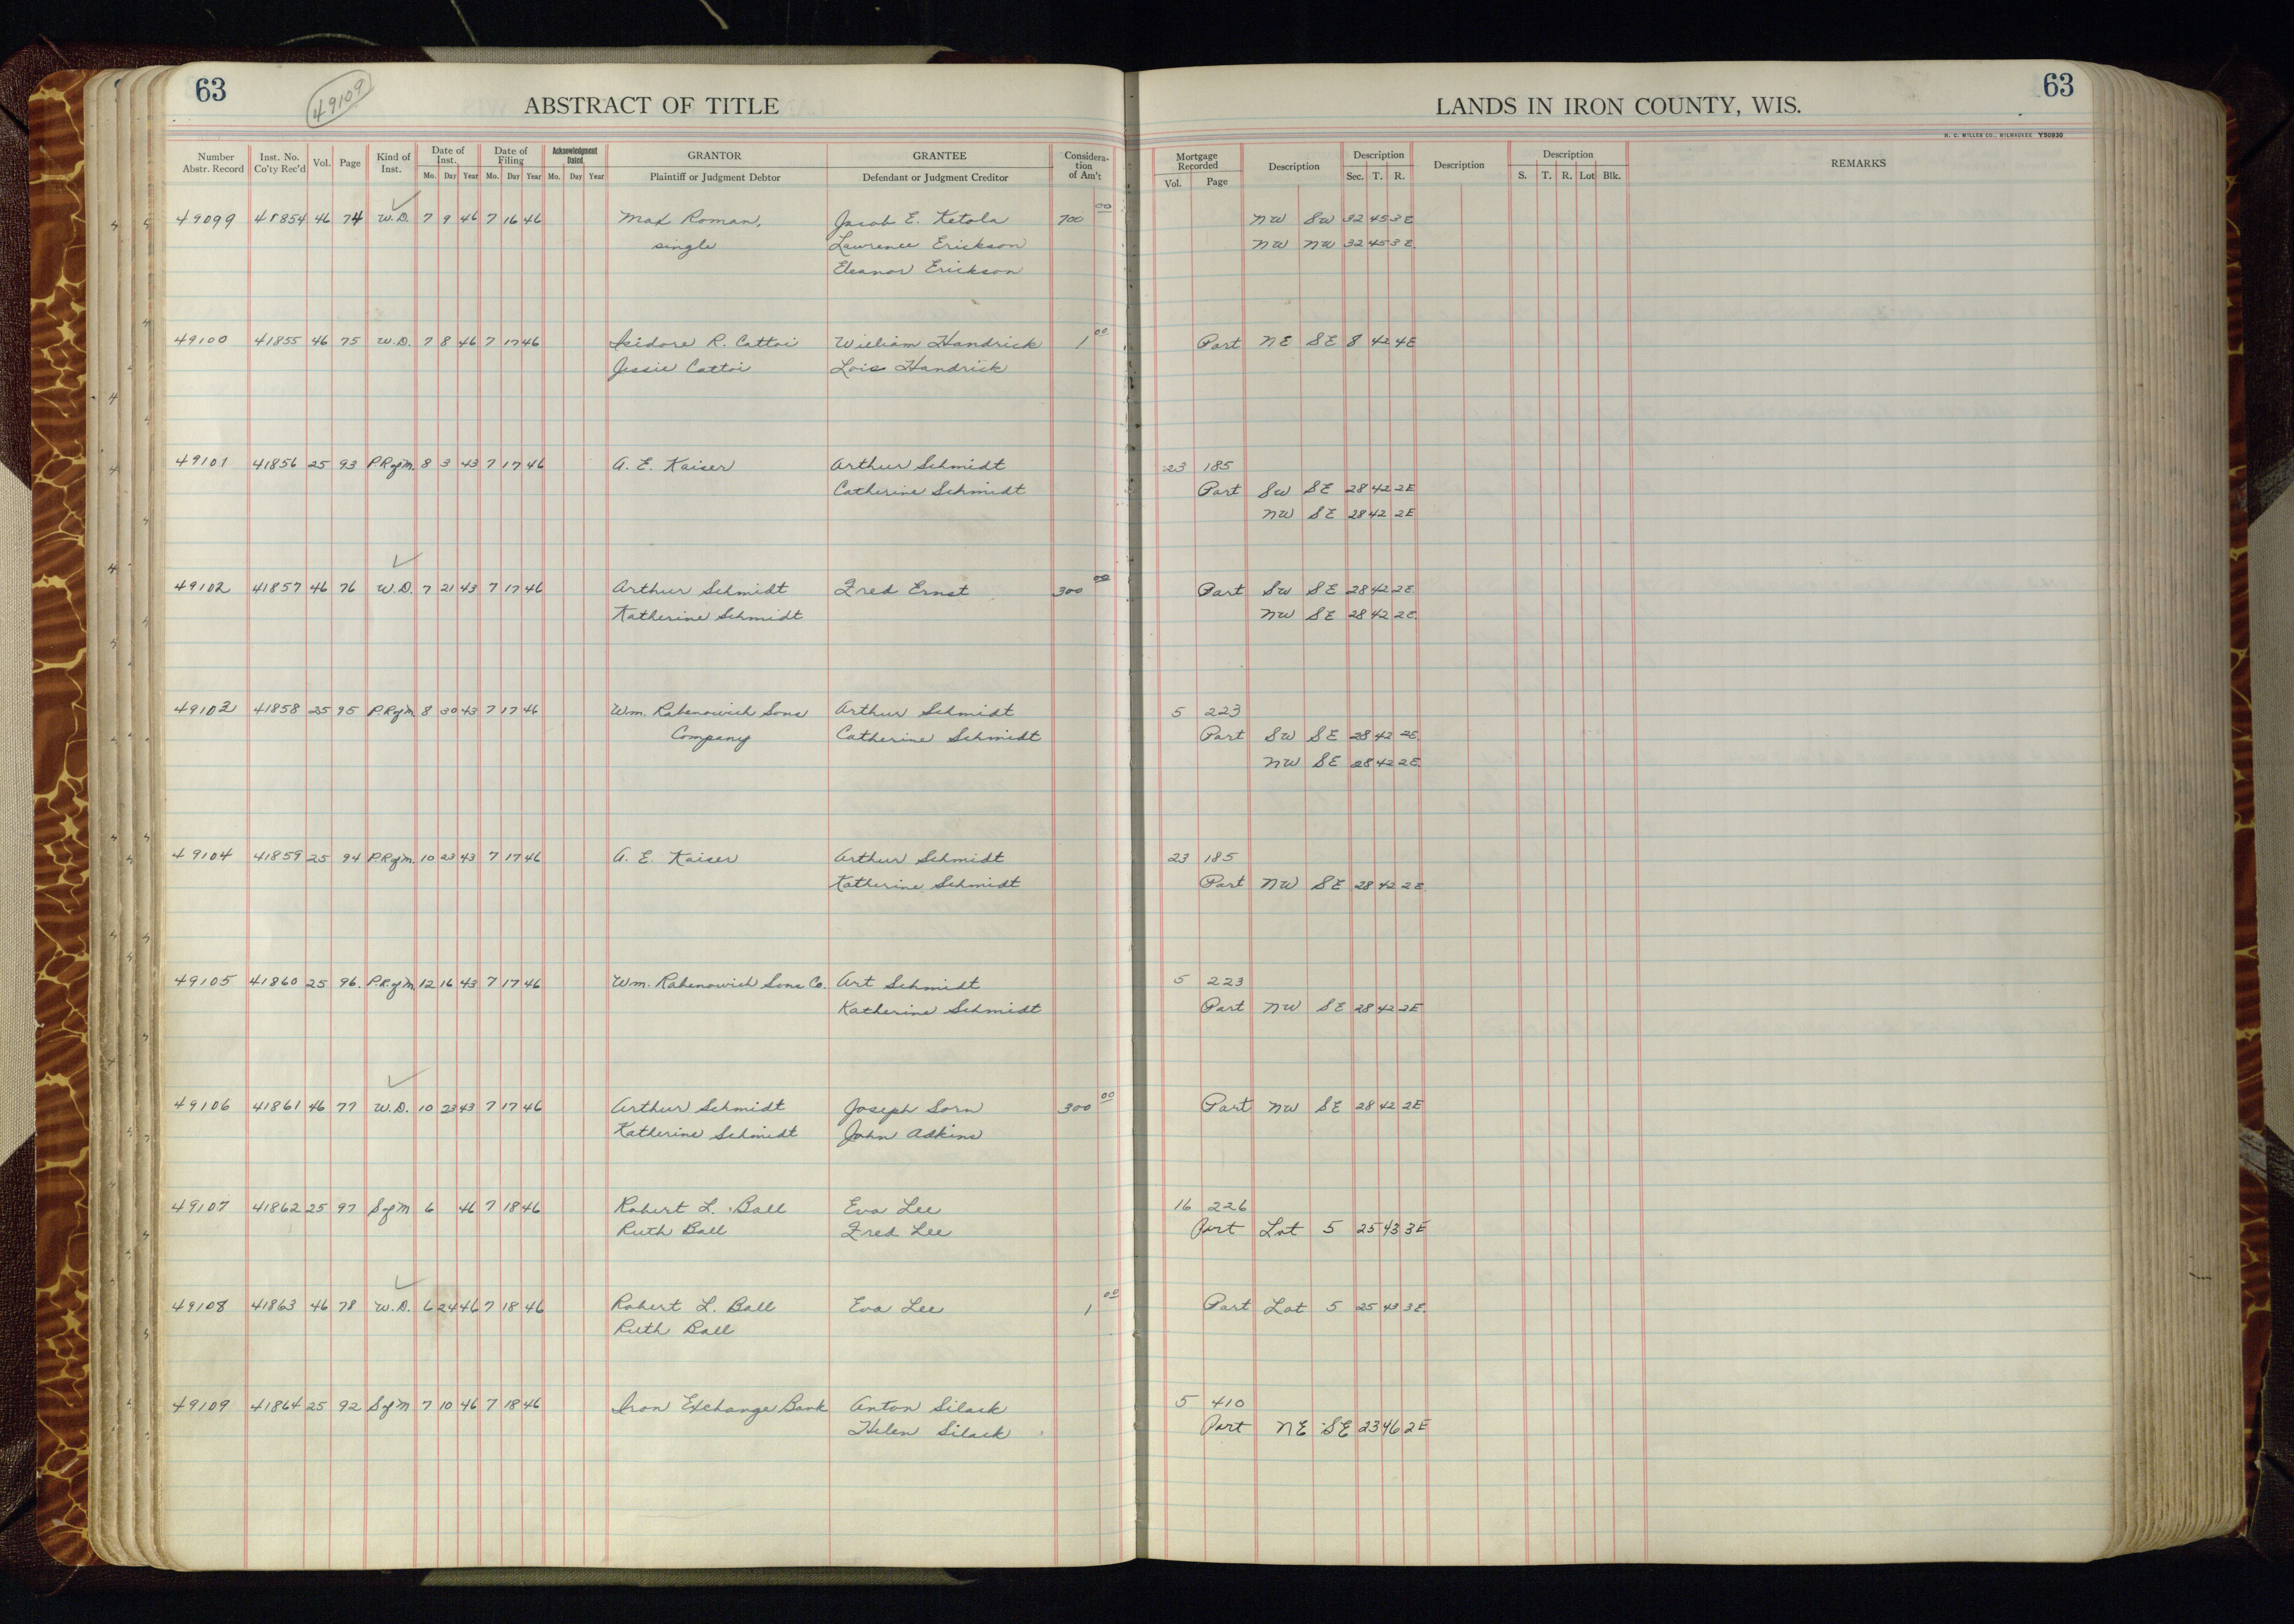 63 49109 ABSTRACT OF TITLE LANDS IN IRON COUNTY, WIS. 63
H. C. MILLER CO., MILWAUKEE Y50930
Number Abstr. Record Inst. No. Co'ty Rec'd Vol. Page Kind of Inst. Date of Inst. Mo. Day Year Date of Filing Mo. Day Year Acknowledgment Dated Mo. Day Year GRANTOR Plaintiff or Judgment Debtor GRANTEE Defendant or Judgment Creditor Considera-tion of Am't Mortgage Recorded Vol. Page Description Description Sec. T. R. Description Description S. T. R. Lot Blk. REMARKS
49099 41854 46 74 W.D. 7 9 46 7 16 46 Max Roman, Jacob E. Ketola 700 00 NW SW 32 45 3E
single Lawrence Erickson NW NW 32 45 3E
Eleanor Erickson
49100 41855 46 75 W.D. 7 8 46 7 17 46 Isidore R. Cattoi William Handrick 1 00 Part NE SE 8 42 4E
Jessie Cattoi Lois Handrick
49101 41856 25 93 P.R of M. 8 3 43 7 17 46 A. E. Kaiser Arthur Schmidt 23 185
Catherine Schmidt Part SW SE 28 42 2E
NW SE 28 42 2E
49102 41857 46 76 W.D. 7 21 43 7 17 46 Arthur Schmidt Fred Ernst 300 00 Part SW SE 28 42 2E
Katherine Schmidt NW SE 28 42 2E.
49103 41858 25 95 P.R of M. 8 30 43 7 17 46 Wm. Rabenowich Sons Arthur Schmidt 5 223
Company Catherine Schmidt Part SW SE 28 42 2E.
NW SE 28 42 2E.
49104 41859 25 94 P.R of M. 10 23 43 7 17 46 A. E. Kaiser Arthur Schmidt 23 185
Katherine Schmidt Part NW SE 28 42 2E.
49105 41860 25 96. P.R. of M. 12 16 43 7 17 46 Wm. Rabenowich Sons Co. Art Schmidt 5 223
Katherine Schmidt Part NW SE 28 42 2E
49106 41861 46 77 W.D. 10 23 43 7 17 46 Arthur Schmidt Joseph Sorn 300 00 Part NW SE 28 42 2E
Katherine Schmidt John Adkins
49107 41862 25 97 S of M 6 46 7 18 46 Robert L. Ball Eva Lee 16 226
Ruth Ball Fred Lee Part Lot 5 25 43 3E
49108 41863 46 78 W.D. 6 24 46 7 18 46 Robert L. Ball Eva Lee 1 00 Part Lot 5 25 43 3E.
Ruth Ball
49109 41864 25 92 S of M 7 10 46 7 18 46 Iron Exchange Bank Anton Silack 5 410
Helen Silack Part NE SE 23 46 2E